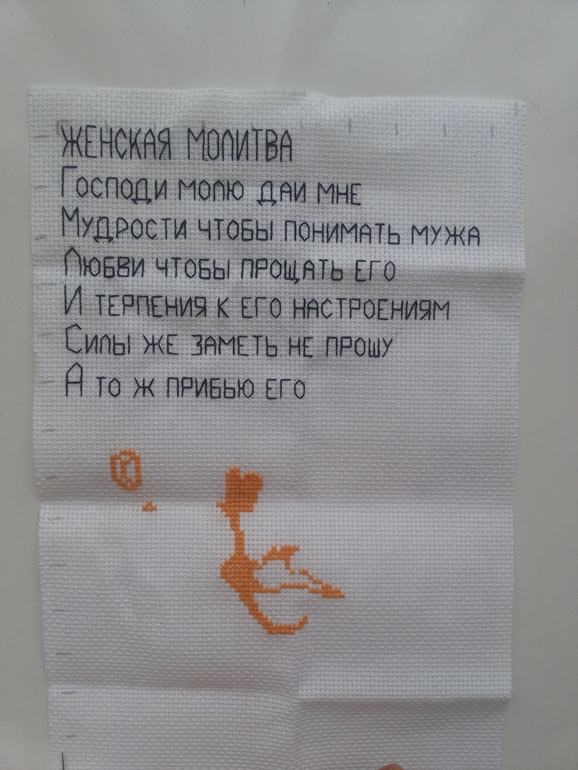 ЖЕНСКАЯ МОЛИТВА
Господи молю даи мне
Мудрости чтобы понимать мужа
Любви чтобы прощать его
И терпения к его настроениям
Силы же заметь не прошу
А то ж прибью его